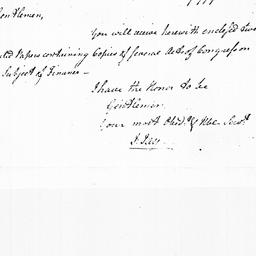 Gentlemen,
You will receive herewith enclosed two
Papers containing Copies of several Acts of Congress on
Subject of Finance —
I have the Honor to be
Gentlemen
Your most Obed. & Hble Servt
J. Jay